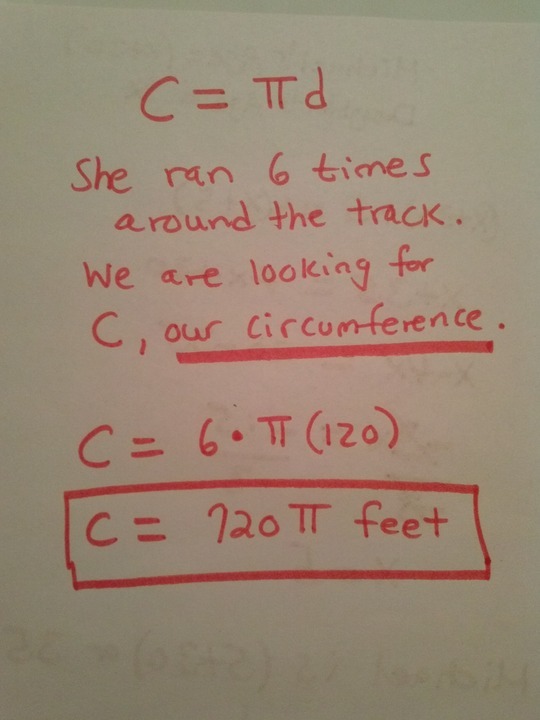 C = πd
She ran 6 times
around the track.
We are looking for
C, our circumference.
C = 6 • π (120)
C = 720 π feet